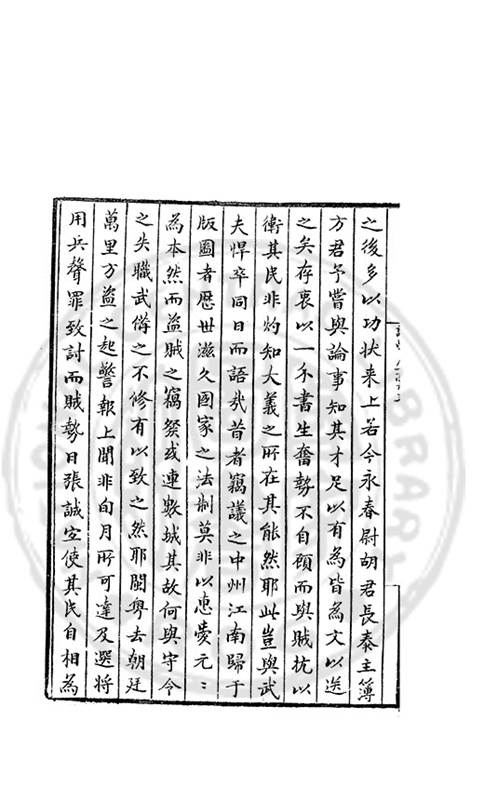 之後多以功狀来上若今永春尉胡君長泰主簿
方君予嘗與論事知其才足以有為皆為文以送
之矣存衷以一介書生奮勢不自顧而與賊抗以
衛其民非灼知大義之所在其能然耶此豈與武
夫悍卒同日而語哉昔者竊議之中州江南歸于
版圖者歴世滋久國家之法制莫非以恵愛元〻
為本然而盗賊之竊發或連數城其故何與守令
之失職武偹之不修有以致之然耶閩粤去朝廷
萬里方盗之起警報上聞非旬月所可達及選將
用兵聲罪致討而賊勢日張誠宜使其民自相為